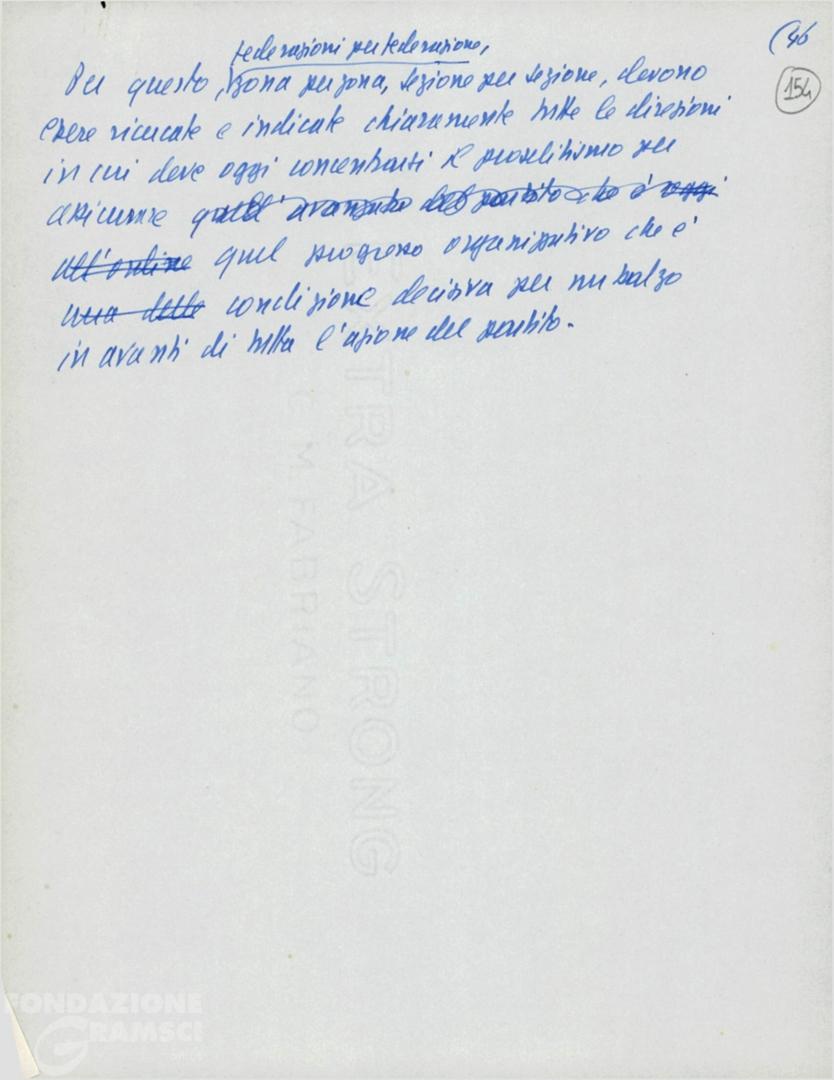 (46
154
federazioni per federazione,
Per questo, zona per zona, sezione per sezione, devono
essere ricercate e indicate chiaramente tutte le direzioni
in cui deve oggi concentrarsi il proselitismo per
assicurare quell'avanzata del partito che è oggi
all'ordine quel progresso organizzativo che è
una delle condizione decisiva per un balzo
in avanti di tutta l'azione del partito.
EXTRA STRONG
G M FABRIANO
FONDAZIONE
GRAMSCI